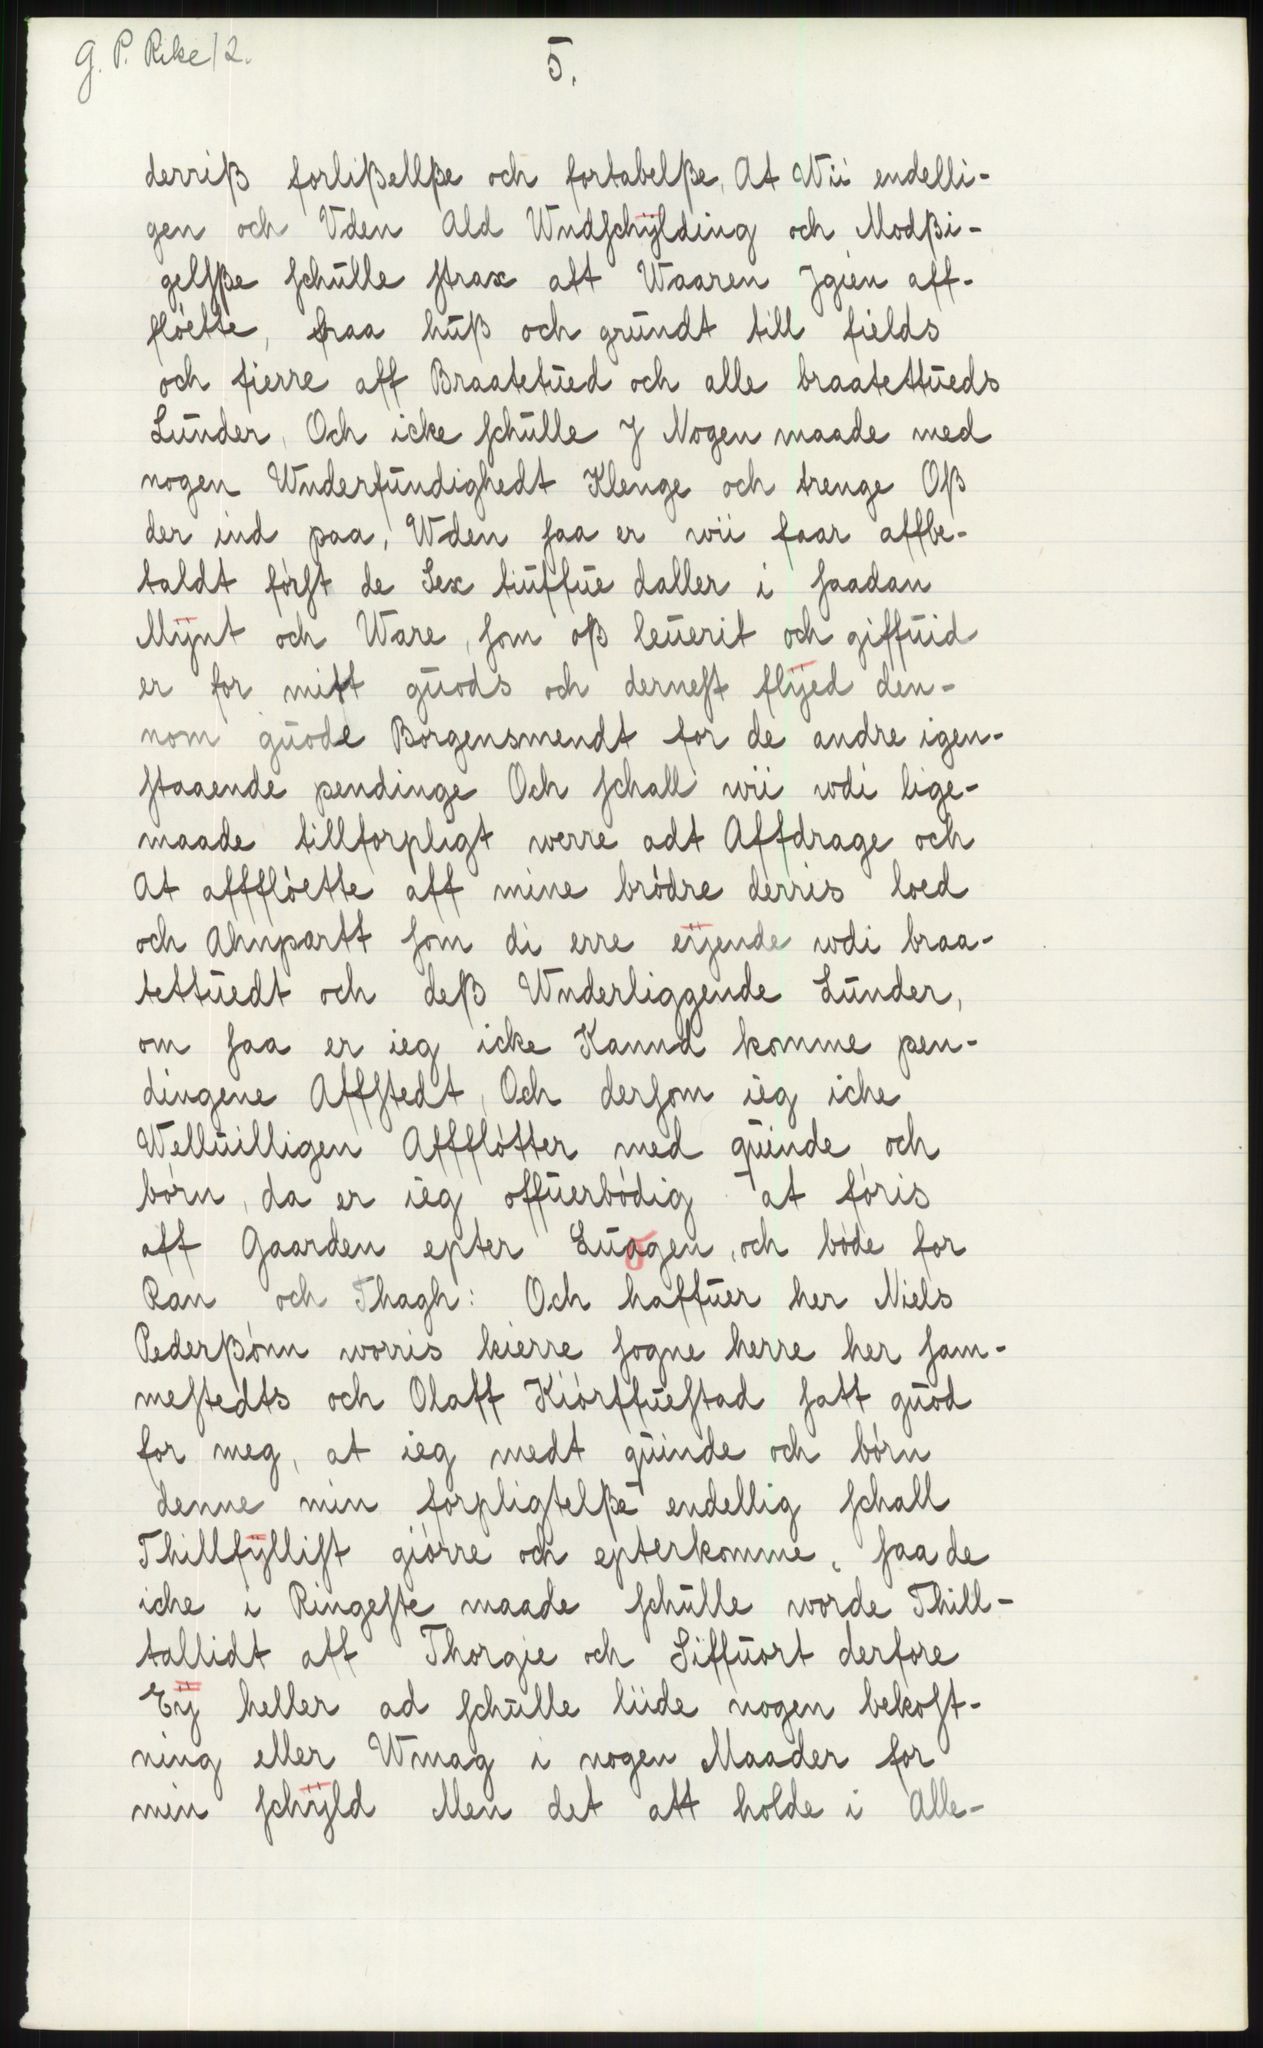 G. P. Rike/2.
5.
derriß forlißellße och fortabelße, At Wii endelli-
gen och Vden Ald Wndschÿlding och Modßi-
gelsße schulle strax att Waaren Jgien aff-
flóette, fraa hūß och grūndt till fields
och fierre aff Braatetūed och alle braatettūeds
Lūnder, Och icke schūlle J Nogen maade med
nogen Wnderfūndighedt Klenge och trenge Oß
der ind paa, Wden saa er wii faar affbe-
taldt fórst de Sex tiūffūe daller i saadan
Mÿnt och Ware, som oß leūerit och giffūid
er for mitt gūods och dernest flÿed den-
nom gūode Borgensmendt for de andre igen-
staaende pendinge Och schall wii wdi lige-
maade tillforpligt werre adt Affdrage och
At affflóette aff mine bródre derris loed
och Ahnpartt som di erre eÿende wdi braa-
tettūedt och deß Wnderliggende Lūnder,
om saa er ieg icke Kannd komme pen-
dingene Affstedt, Och dersom ieg iche
Wellūilligen Affflótter med qūinde och
bórn, da er ieg offūerbódig at fóris
aff Gaarden epter Lūagen, och bóde for
Ran och Thagh: Och haffūer her Niels
Pederßónn worris kierre sogne herre her sam-
mestedts och Olaff Kiórffūestad satt gūod
for meg, at ieg medt qūinde och bórn
denne min forpligtelße endellig schall
Thillfÿllist giórre och epterkomme, saa de
iche i Ringeste maade schūlle worde Thill-
tallidt aff Thorgie och Siffūort derfore
Eÿ heller ad schūlle liide nogen bekost-
ning eller Wmag i nogen Maader for
min schÿld Men det att holde i Alle-